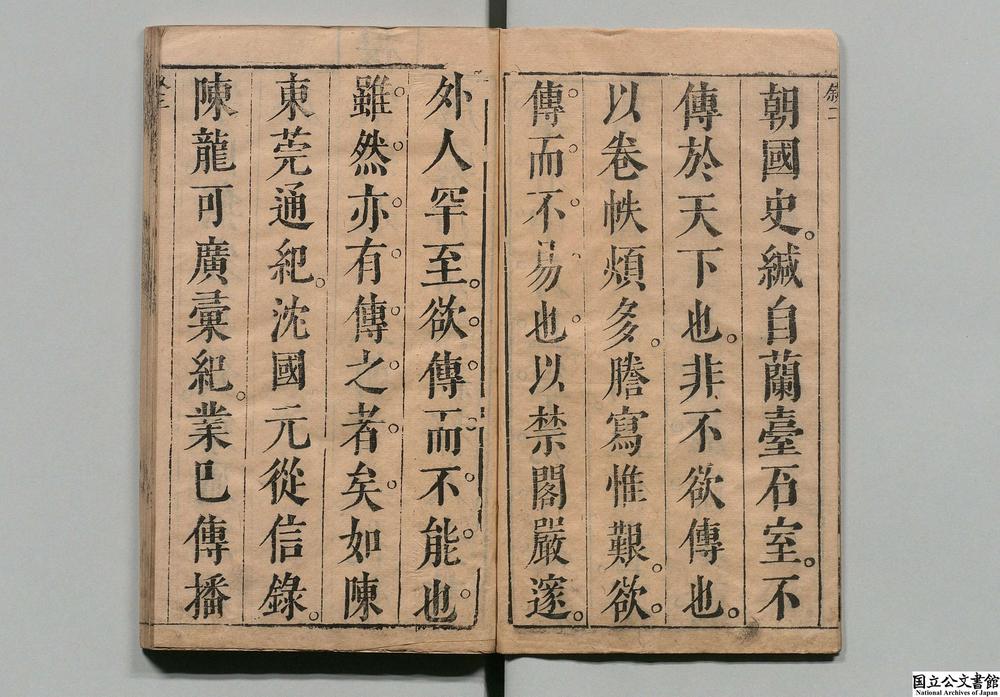 敘二
朝國史。緘自蘭臺石室。不
傳於天下也。非不欲傳也。
以卷帙煩多。謄寫惟艱。欲
傳而不易也以禁閣嚴邃。
外人罕至。欲傳而不能也。
雖然亦有傳之者矣如陳
東莞通紀。沈國元從信錄。
陳龍可廣彙紀。業已傳播
國立公文書館
National Archives of Japan